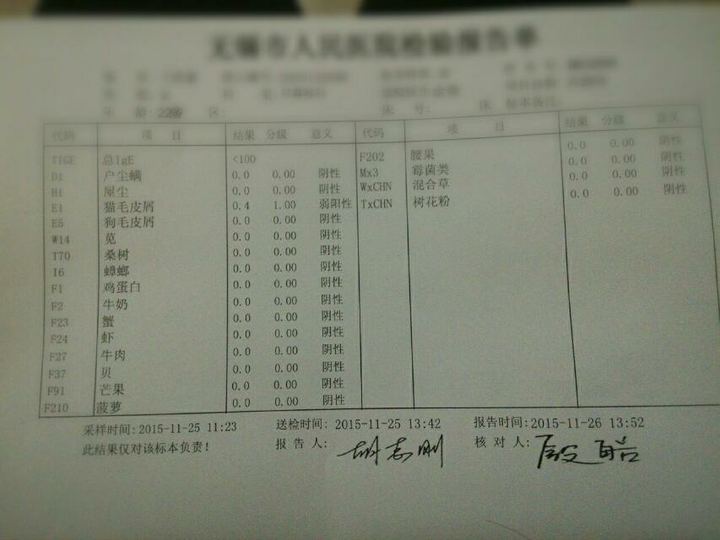 无锡市人民医院检验报告单
代码 项 目 结果 分级 意义 代码 项 目 结果 分级 意义
TIGE 总IgE <100 F202 腰果 0.0 0.00 阴性
D1 户尘螨 0.0 0.00 阴性 Mx3 霉菌类 0.0 0.00 阴性
H1 屋尘 0.0 0.00 阴性 WxCHN 混合草 0.0 0.00 阴性
E1 猫毛皮屑 0.4 1.00 弱阳性 TxCHN 树花粉 0.0 0.00 阴性
E5 狗毛皮屑 0.0 0.00 阴性
W14 苋 0.0 0.00 阴性
T70 桑树 0.0 0.00 阴性
I6 蟑螂 0.0 0.00 阴性
F1 鸡蛋白 0.0 0.00 阴性
F2 牛奶 0.0 0.00 阴性
F23 蟹 0.0 0.00 阴性
F24 虾 0.0 0.00 阴性
F27 牛肉 0.0 0.00 阴性
F37 贝 0.0 0.00 阴性
F91 芒果 0.0 0.00 阴性
F210 菠萝 0.0 0.00 阴性
采样时间: 2015-11-25 11:23 送检时间: 2015-11-25 13:42 报告时间: 2015-11-26 13:52
此结果仅对该标本负责! 报告人: 胡志刚 核对人: